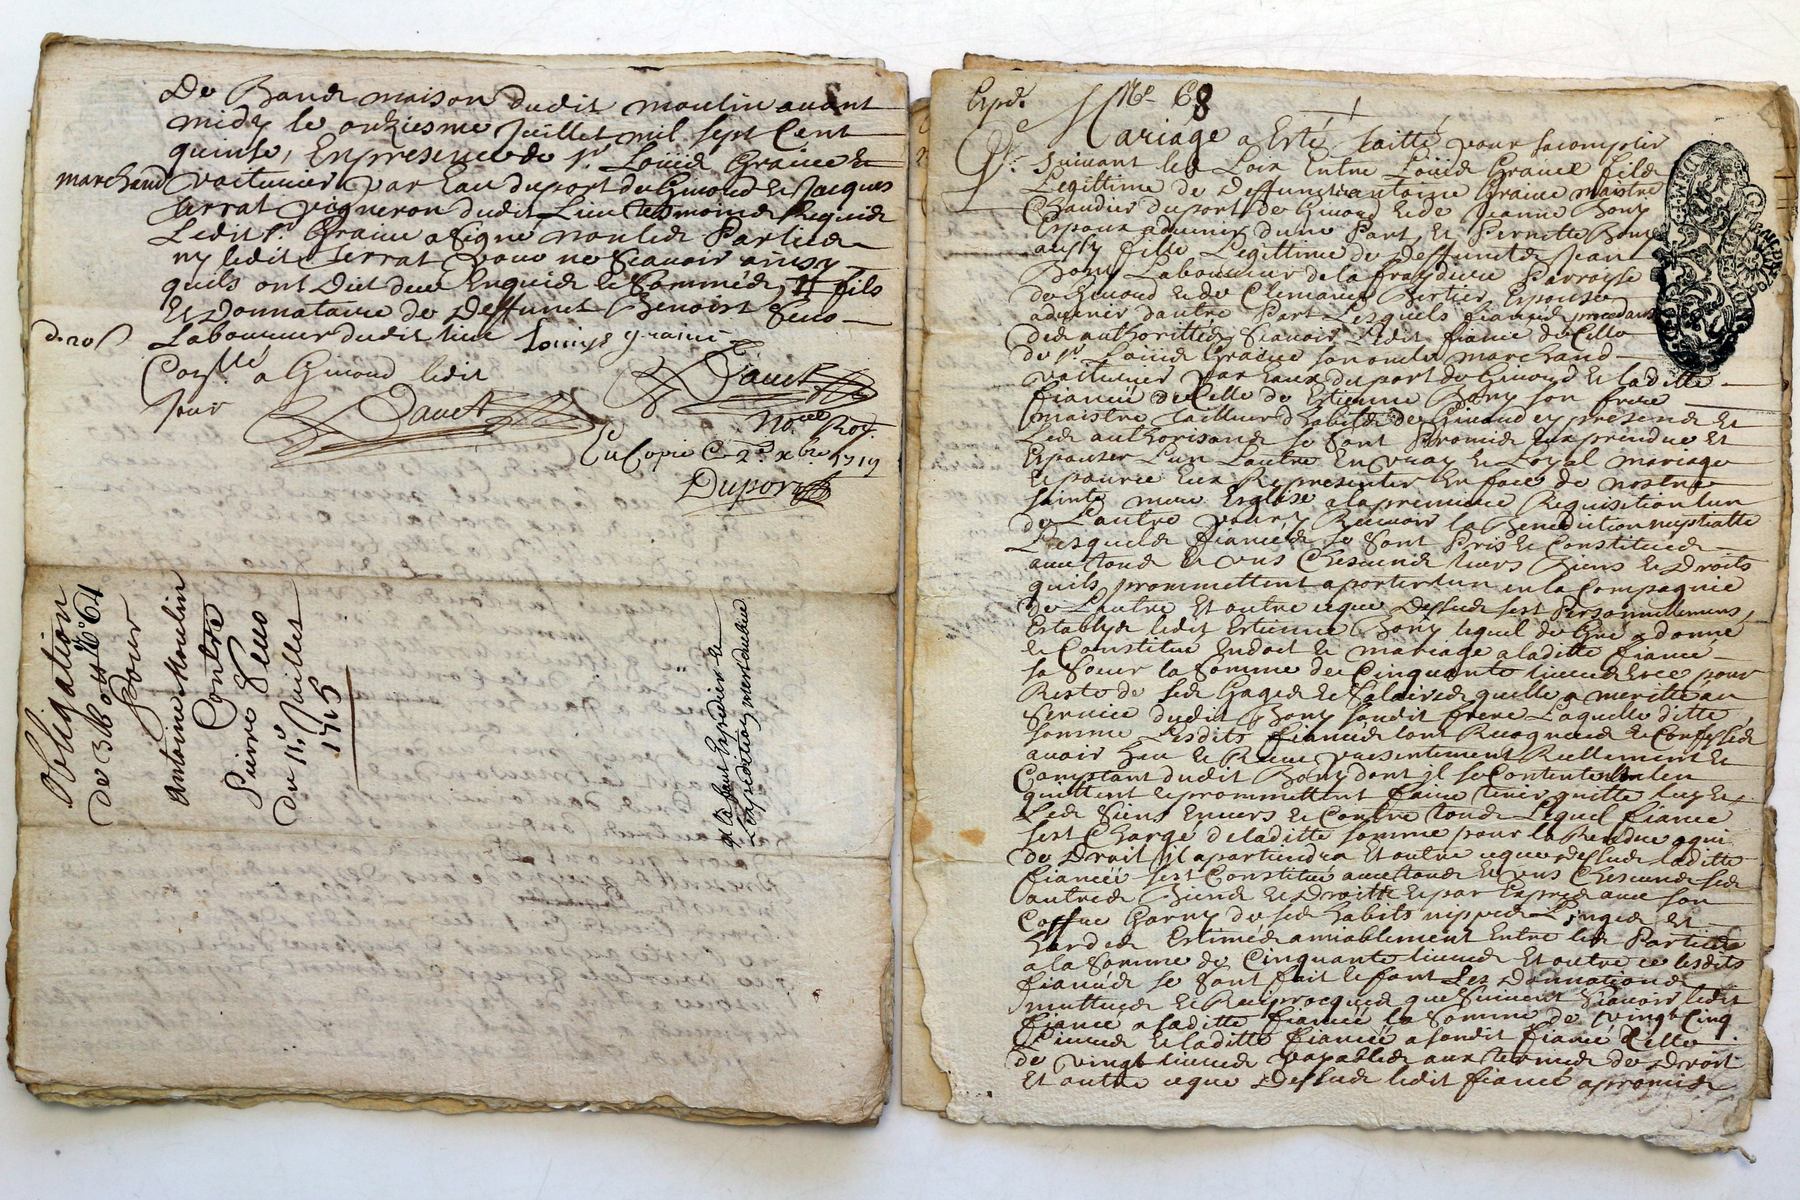 De Bande maison dudit moulin avant
midy le onziesme Juillet mil sept Cent
quinse, En presence de sr Loüis Graine
marchand voiturier par Eau du port de Giuord Et Jacques
Serrat vigneron dudit Lieu tesmoins Requis
Ledit sr Graine a signé non les Parties
ny ledit Serrat pour ne scauoir ainsy
quils ont dit de ce Enquis et sommés, fils
Et Donnataire de Deffunct Benoist
Laboureur dudit lieu Louys graine
Con.llé a Giuord ledit
Jour
Dauct
Dauct
No.re Roy.
Eu Copie Ce 2e xbre 1719
Duport
Obligation
de 36 No 64
Pour
Antoine Moulin
Contre
Pierre
du 11e Juillet
1715
Il la faut Expedier
Expé.
No 68
Mariage a Esté traitté pour sacomplir
suiuant les Loix Entre Loüis Graine fils
Legittime de Deffunct antoine Graine maistre
du port de Giuord et de Jeanne Bony
Espoux aduenir dune Part, Et Pernette Bony
aussy fille Legittime de Deffunct Jean
Bony Laboureur de la parroysse
de Giuord et de Clemance Bertier Espouse
aduenir dautre Part Lesquels fiancés procedans
des authorittés scauoir Ledit fiancé de Celle
de sr Loüis Graine son oncle marchand
voiturier par Eaux du port de Giuord Et laditte
fiancée de Celle de Estienne Bony son frere
maistre tailleur dhabits de Giuord cy presents Et
Les authorisans se sont Promis Eux prendre Et
Espouser L'un Lautre En vray et Loyal mariage
Et pour ce Eux Representer En face de nostre
sainte mere Esglise a la premiere Requisition Lun
de Lautre pour y Receuoir la Benediction nuptialle
Lesquels fiancés se sont Pris et Constitués
auec tous et uns Chescuns leurs Biens et Droits
quils promettent aporter lun en la Compagnie
de Lautre Et outre ceque Dessus sest Personnellement
Establys ledit Estienne Bony lequel de Gré a donné
et Constitué En dot et mariage a laditte fiancée
sa soeur la somme de Cinquante liures pour
Reste de ses Gages et salaires quelle a meritté au
seruice dudit Bony sondit frere Laquelle ditte
somme Lesdits fiancés ont Recognus et Confessé
auoir heu et Receu presentement Reellement et
Comptant dudit Bony dont il se Contentent
quittent et promettent faire tenir quitte luy et
Les siens Enuers et Contre tous Lequel fiancé
sest Chargé de laditte somme pour la Rendre a qui
de Droit il apartiendra Et outre ceque dessus laditte
fiancée sest Constitué auec tous et uns Chescuns ses
autres Biens et Droitts et par Exprés auec son
Coffre Garny de ses habits nippes Linges et
hardes Estimés amiablement Entre les Parties
a la somme de Cinquante liures Et outre ce lesdits
fiancés se sont fait et font Les Donnations
mutuelles et Reciprocques que suiuent scauoir ledit
fiancé a laditte fiancée la somme de vingt Cinq
Liures et laditte fiancée a sondit fiancé Celle
de vingt liures payables aux termes de Droit
Et outre ceque Dessus ledit fiancé a promis